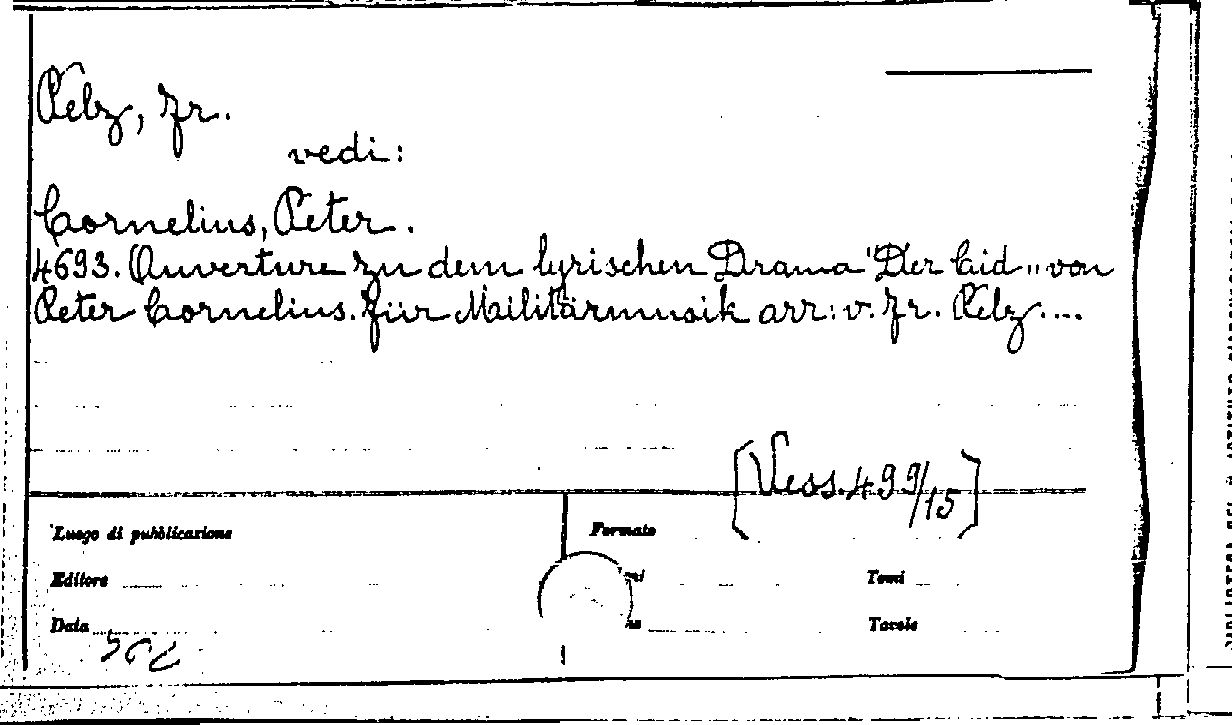 Pelz, Fr.
vedi:
Cornelius, Peter.
4693. Ouverture zu dem lyrischen Drama "Der Cid" von
Peter Cornelius. Für Militärmusik arr: v. Fr. Pelz....
[Vess. 499/15]
Luogo di pubblicazione
Formato
Editore
Tomi
Data
Tavole